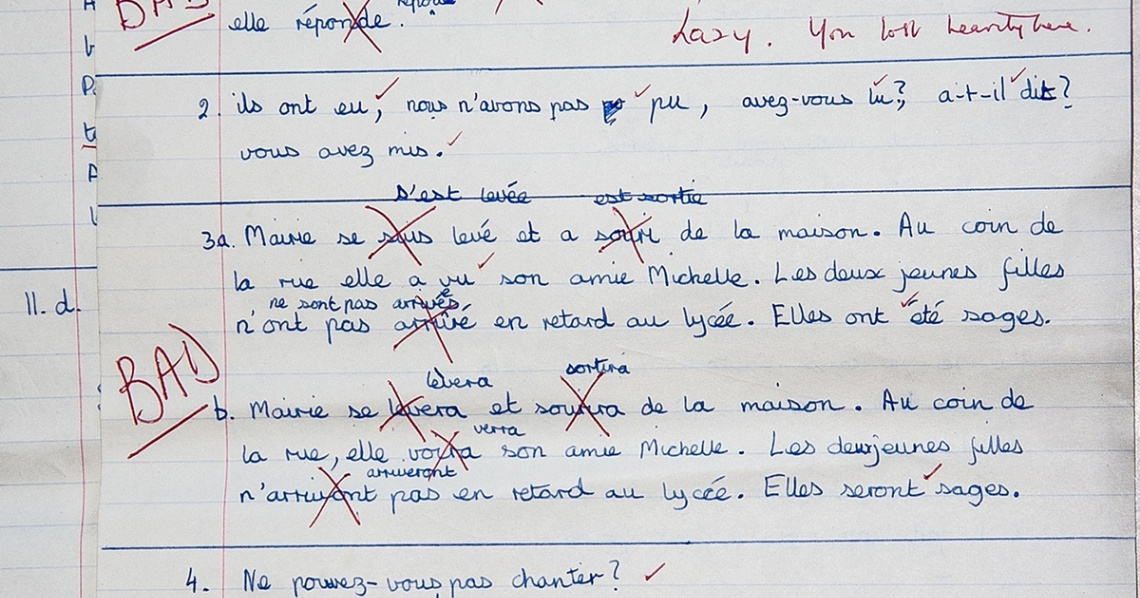 BAD
elle réponde.
Lazy. You lost
2. ils ont eu, nous n'avons pas pu, avez-vous lu? a-t-il dit?
vous avez mis.
s'est levée est sortie
3a. Mairie se suis levé et a souri de la maison. Au coin de
la rue elle a vu son amie Michelle. Les deux jeunes filles
ne sont pas arrivés
n'ont pas arrivé en retard au lycée. Elles ont été sages.
11. d.
BAD
lèvera sortira
b. Mairie se levera et sourira de la maison. Au coin de
verra
la rue, elle voira son amie Michelle. Les deux jeunes filles
arriveront
n'arrivont pas en retard au lycée. Elles seront sages.
4. Ne pouvez-vous pas chanter?